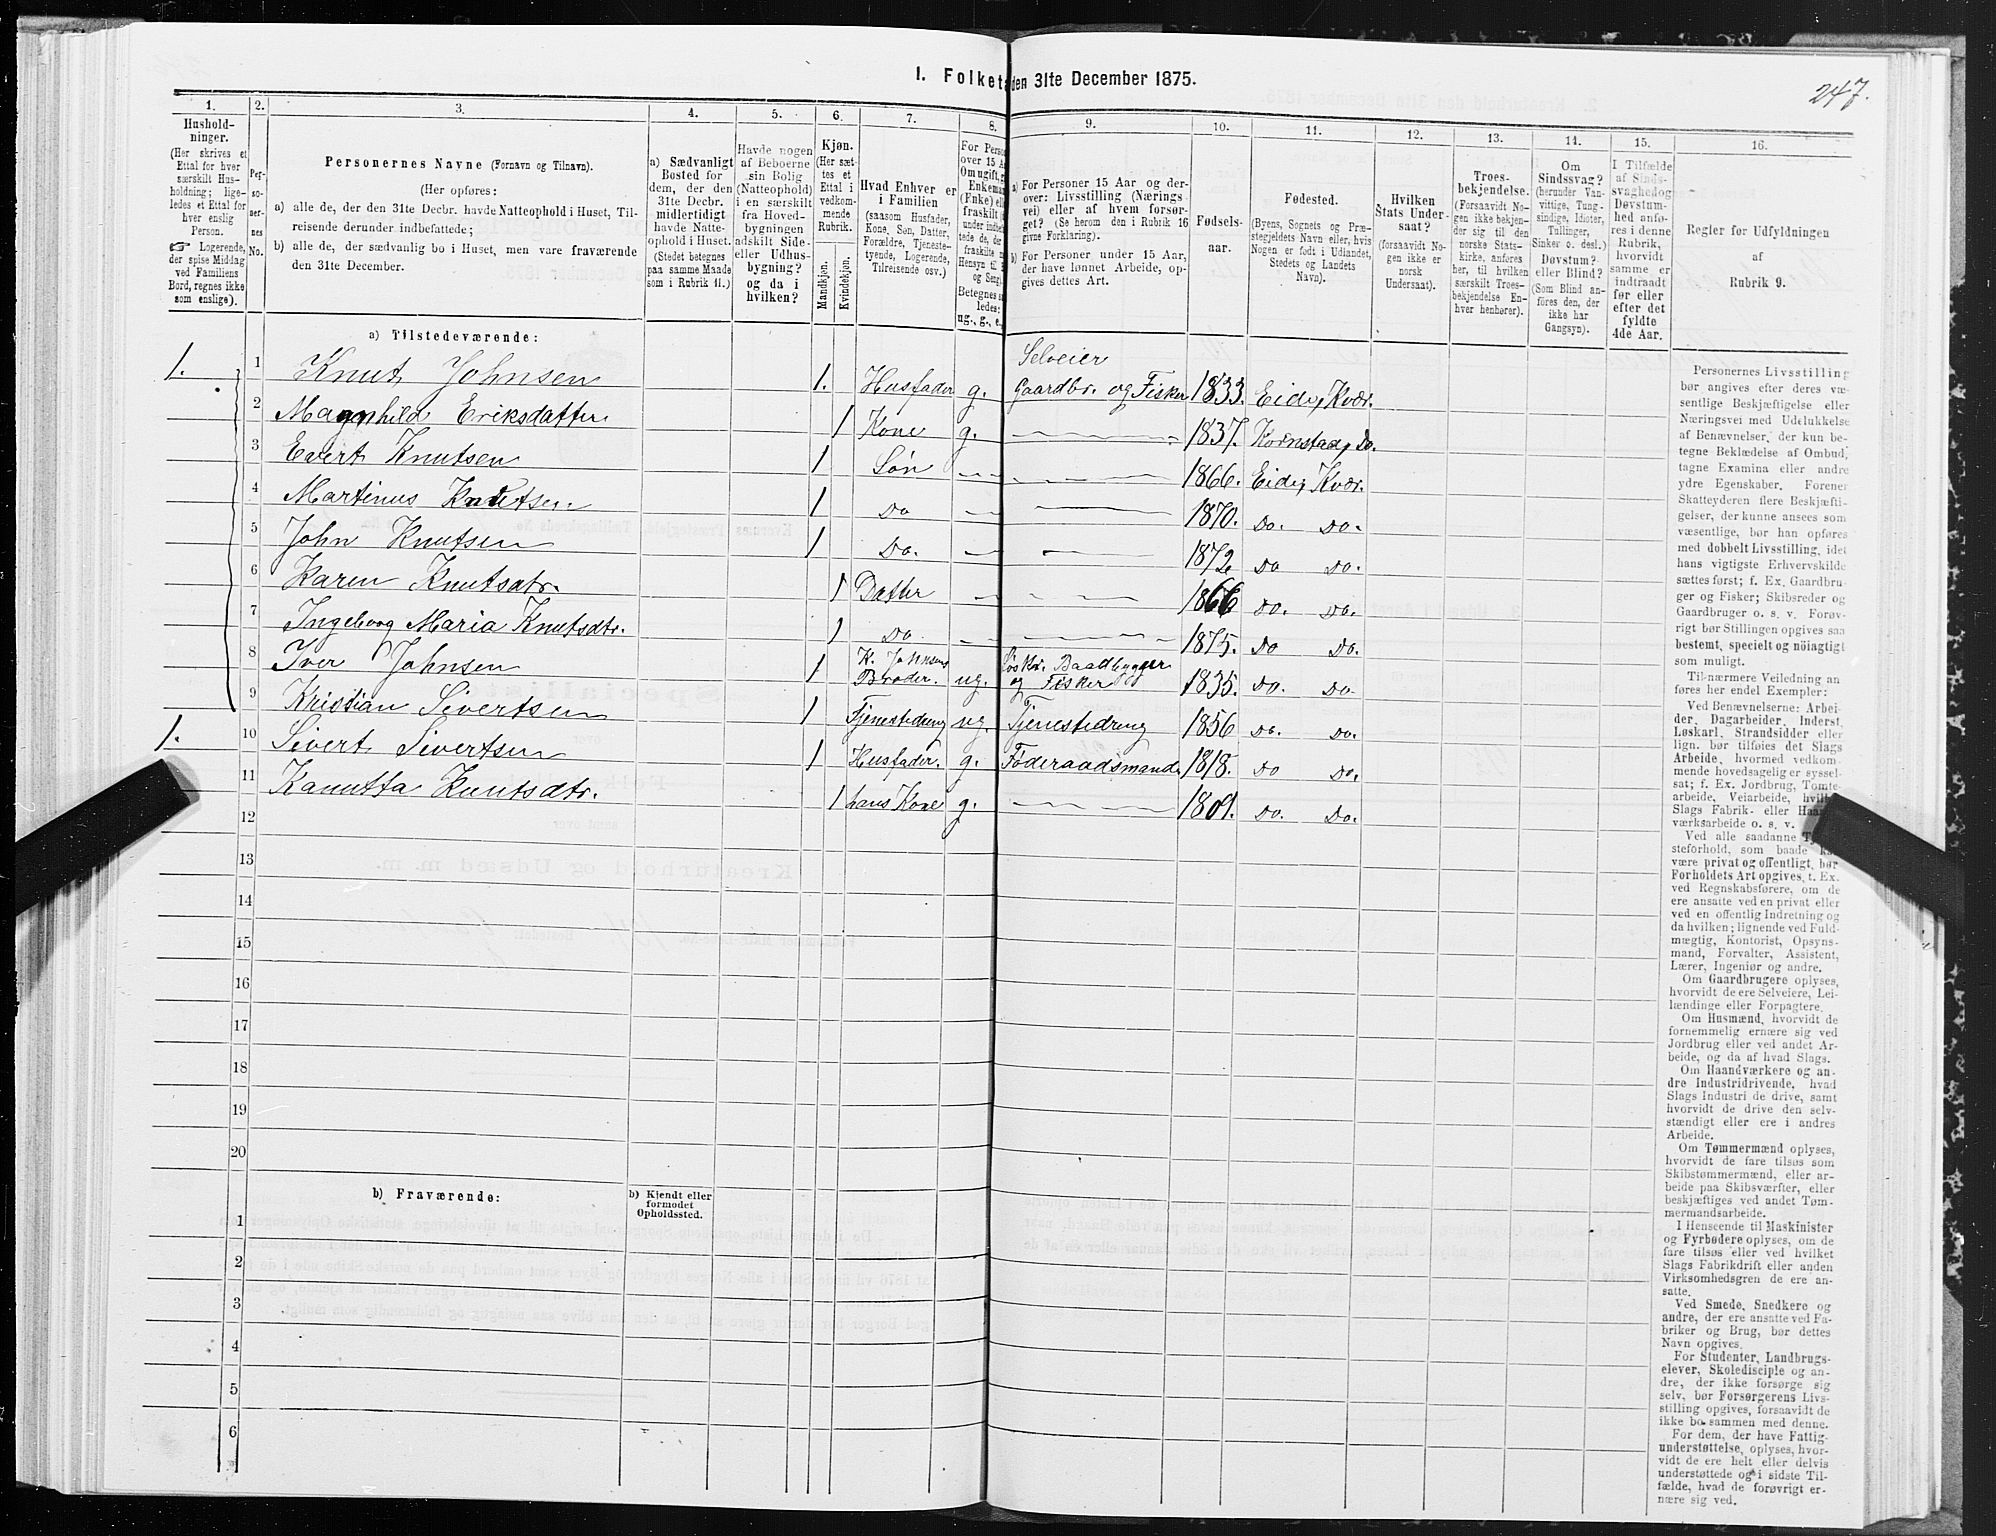 1. Folketæ den 31te December 1875.
247.
1. 2. 3. 4. 5. 6. 7. 8. 9. 10. 11. 12. 13. 14. 15. 16.
Hushold-
ninger.
(Her skrives et
Ettal for hver
særskilt Hus-
holdning; lige-
ledes et Ettal for
hver enslig
Person.
☞ Logerende,
der spise Middag
ved Familiens
Bord, regnes ikke
som enslige).
Per-
so-
ner-
nes
No.
Personernes Navne (Fornavn og Tilnavn).
(Her opføres:
a) alle de, der den 31te Decbr. havde Natteophold i Huset, Til-
reisende derunder indbefattede;
b) alle de, der sædvanlig bo i Huset, men vare fraværende
den 31te December.
a) Sædvanligt
Bosted for
dem, der den
31te Decbr.
midlertidigt
havde Natte-
ophold i Huset.
(Stedet betegnes
paa samme Maade
som i Rubrik 11.)
Havde nogen
af Beboerne
sin Bolig
(Natteophold)
i en særskilt
fra Hoved-
bygningen
adskilt Side-
eller Udhus-
bygning?
og da i
hvilken?
Kjøn.
(Her sæt-
tes et
Ettal i
vedkom-
mende
Rubrik.
Mandkjøn.
Kvindekjøn.
Hvad Enhver er
i Familien
(saasom Husfader,
Kone, Søn, Datter,
Forældre, Tjeneste-
tyende, Logerende,
Tilreisende osv.)
For Pers
over 15 A
Om ugift, g
Enkeman
(Enke) ell
fraskilt (
under indbet
tede de, de
fraskilte m
Hensyn til
og Seng).
Betegnes s
ledes:
ug., g., e.,
a) For Personer 15 Aar og der-
over: Livsstilling (Nærings-
vei) eller af hvem forsør-
get? (Se herom den i Rubrik 16
givne Forklaring).
b) For Personer under 15 Aar,
der have lønnet Arbeide, op-
gives dettes Art.
Fødsels-
aar.
Fødested.
(Byens, Sognets og Præ-
stegjeldets Navn eller, hvis
Nogen er født i Udlandet,
Stedets og Landets
Navn).
Hvilken
Stats Under-
saat?
(forsaavidt No-
gen ikke er
norsk
Undersaat).
Troes-
bekjendelse.
(Forsaavidt No-
gen ikke bekjen-
der sig til den
norske Stats-
kirke, anføres
her, til hvilken
særskilt Troes-
bekjendelse En-
hver henhører).
Om
Sindssvag?
(herunder Van-
vittige, Tung-
sindige, Idioter,
Tullinger,
Sinker o. desl.)
Døvstum?
eller Blind?
(Som Blind an-
føres den, der
ikke har
Gangsyn).
I Tilfælde
af Sinds-
svaghed og
Døvstum-
hed anfø-
res i denne
Rubrik,
hvorvidt
samme er
indtraadt
før eller
efter det
fyldte
4de Aar.
Regler for Udfyldningen
af
Rubrik 9.
a) Tilstedeværende:
1. 1 Knut Johnsen 1. Husfader g. Selveier Gaardbr. og Fisker 1833. Eide, Kvær.
2 Magnhild Eriksdatter 1 Kone g. 1837. Kornstad, Do.
3 Evert Knutsen 1 Søn 1866. Eide, Kvær.
4 Martinus Knutsen 1 Do 1870. Do. Do.
5 John Knutsen 1 Do. 1872 Do Do.
6 Karen Knutsdtr. 1 Datter 1866 Do. Do.
7 Ingeborg Maria Knutsdtr. 1 Do 1875. Do Do.
8 Iver Johnsen 1 K. Johnsens Broder. ug. Baadbygger og Fisker 1835. Do. Do.
9 Kristian Sivertsen 1 Tjenestedreng ug. Tjenestedreng 1856 Do. Do.
1. 10 Sivert Sivertsen 1 Husfader. g. Føderaadsmand 1818. Do Do.
11 Kanutta Knutsdtr. 1 hans Kone g. 1801. Do. Do.
12
13
14
15
16
17
18
19
20
b) Fraværende:
b) Kjendt eller
formodet
Opholdssted.
1
2
3
4
5
6
Personernes Livsstilling
bør angives efter deres væ-
sentlige Beskjæftigelse eller
Næringsvei med Udelukkelse
af Benævnelser, der kun be-
tegne Beklædelse af Ombud,
tagne Examina eller andre
ydre Egenskaber. Forener
Skatteyderen flere Beskjæfti-
gelser, der kunne ansees som
væsentlige, bør han opføres
med dobbelt Livsstilling, idet
hans vigtigste Erhvervskilde
sættes først; f. Ex. Gaardbru-
ger og Fisker; Skibsreder og
Gaardbruger o. s. v. Forøv-
rigt bør Stillingen opgives saa
bestemt, specielt og nöiagtigt
som muligt.
Til nærmere Veiledning an
føres her endel Exempler:
Ved Benævnelserne: Arbei-
der, Dagarbeider, Inderst,
Løskarl, Strandsidder eller
lign. bør tilføies det Slags
Arbeide, hvormed vedkom-
mende hovedsagelig er syssel-
sat; f. Ex. Jordbrug, Tomte-
arbeide, Veiarbeide, hvilket
Slags Fabrik- eller Haand-
værksarbeide o. s. v.
Ved alle saadanne Tjene-
steforhold, som baade kan
være privat og offentligt, bør
Forholdets Art opgives, t. Ex.
ved Regnskabsførere, om de
ere ansatte ved en privat eller
ved en offentlig Indretning og
da hvilken; lignende ved Fuld-
mægtig, Kontorist, Opsyns-
mand, Forvalter, Assistent,
Lærer, Ingeniør og andre.
Om Gaardbrugere oplyses,
hvorvidt de ere Selveiere, Lei-
lændinge eller Forpagtere.
Om Husmænd, hvorvidt de
fornemmelig ernære sig ved
Jordbrug eller ved andet Ar-
beide, og da af hvad Slags.
Om Haandværkere og an-
dre Industridrivende, hvad
Slags Industri de drive, samt
hvorvidt de drive den selv-
stændigt eller ere i andres
Arbeide.
Om Tømmermænd oplyses,
hvorvidt de fare tilsøs som
Skibstømmermænd, eller ar-
beide paa Skibsværfter, eller
beskjæftiges ved andet Tøm-
mermandsarbeide.
I Henseende til Maskinister
og Fyrbødere oplyses, om de
fare tilsøs eller ved hvilket
Slags Fabrikdrift eller anden
Virksomhedsgren de ere an-
satte.
Ved Smede, Snedkere og
andre, der ere ansatte ved Fa-
briker og Brug, bør dettes
Navn opgives.
For Studenter, Landbrugs-
elever, Skoledisciple og an-
dre, der ikke forsørge sig
selv, bør Forsørgerens Livs-
stilling opgives, forsaavidt de
ikke bo sammen med denne.
For dem, der have Fattig-
understøttelse, oplyses, hvor-
vidt de ere helt eller delvis
understøttede og i sidste Til-
fælde, hvad de forøvrigt er-
nære sig ved.